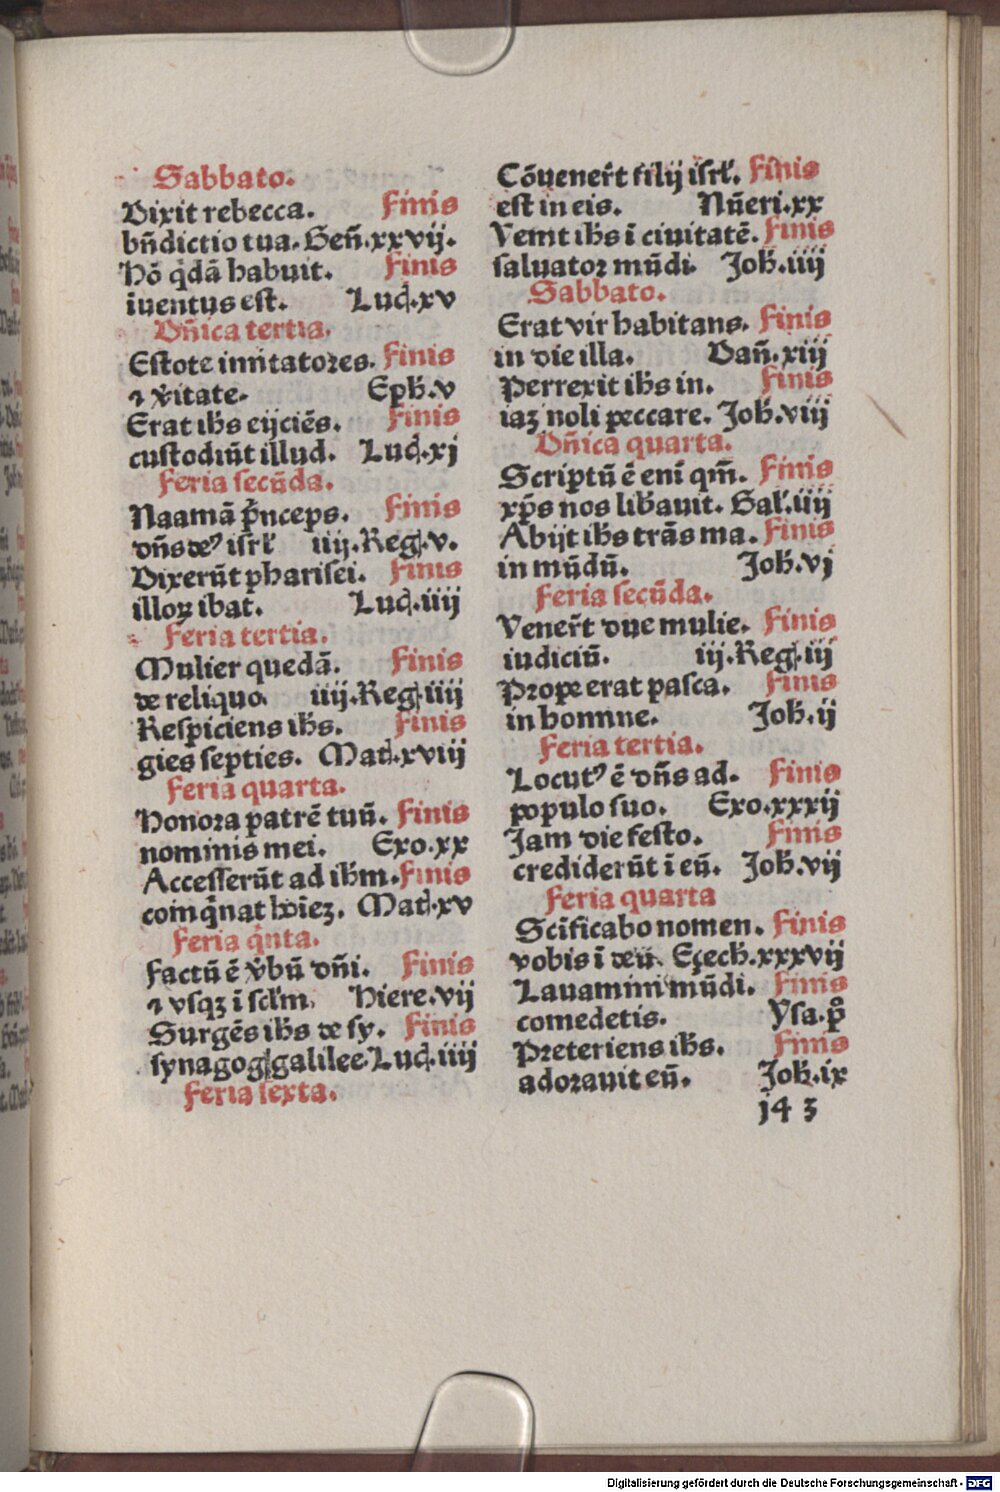 Sabbato.
Dixit rebecca. Finis
bn̄dictio tua. Gen̄.xxvij.
Hō q̇dā habuit. Finis
iuentus est. Luc̣.xv
Dn̄ica tertia.
Estote imitatores. Finis
⁊ v̇itate. Eph̄.v
Erat ih̄s eijciēs. Finis
custodiūt illud. Luc̣.xj
Feria secūda.
Naamā p̄nceps. Finis
dn̄s deꝰ isrl̄ iiij.Reg.v.
Dixerūt pharisei. Finis
illoꝝ ibat. Luc̣.iiij
Feria tertia.
Mulier quedā. Finis
de reliquo. iiij.Reg.iiij
Respiciens ih̄s. Finis
gies septies. Mat.xviij
Feria quarta.
Honora patrē tuū. Finis
nominis mei. Exo.xx
Accesserūt ad ih̄m. Finis
comq̇nat hoīeꝫ. Mat.xv
Feria q̇nta.
Factū ē v̇bū dn̄i. Finis
⁊ vsqꝫ ī scl̄m. Hiere.vij
Surgēs ih̄s de sy. Finis
synagog galilee. Luc̣.iiij
Feria sexta.
Cōuener̄t filij isrl̄. Finis
est in eis. Nūeri.xx
Venit ih̄s ī ciuitatē. Finis
saluator mūdi. Joh̄.iiij
Sabbato.
Erat vir habitans. Finis
in die illa. Dan̄.xiij
Perrexit ih̄s in. Finis
iaꝫ noli peccare. Joh̄.viij
Dn̄ica quarta.
Scriptū ē enī qm̄. Finis
xp̄s nos lib̄auit. Gal̄.iiij
Abijt ih̄s trās ma. Finis
in mūdū. Joh̄.vj
Feria secūda.
Vener̄t due mulie. Finis
iudiciū. iij.Reg.iij
Prope erat pasca. Finis
in homine. Joh̄.ij
Feria tertia.
Locutꝰ ē dn̄s ad. Finis
populo suo. Exo.xxxij
Jam die festo. Finis
crediderūt ī eū. Joh̄.vij
Feria quarta
Scīficabo nomen. Finis
vobis ī deū. Ezech̄.xxxvij
Lauamini mūdi. Finis
comedetis. Ysa.p̊
Preteriens ih̄s. Finis
adorauit eū. Joh̄.ix
j4 3
Digitalisierung gefördert durch die Deutsche Forschungsgemeinschaft - DFG